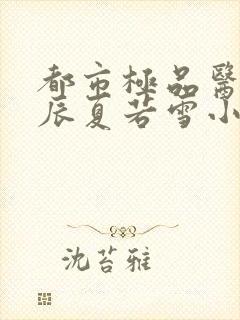 都市極品醫
辰夏若雪小
沈苔雅